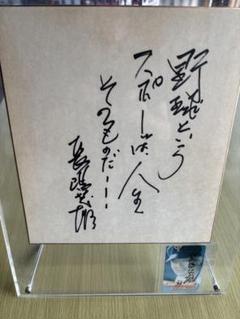 野球という
スポーツは人生
そのものだ!!
長嶋茂雄